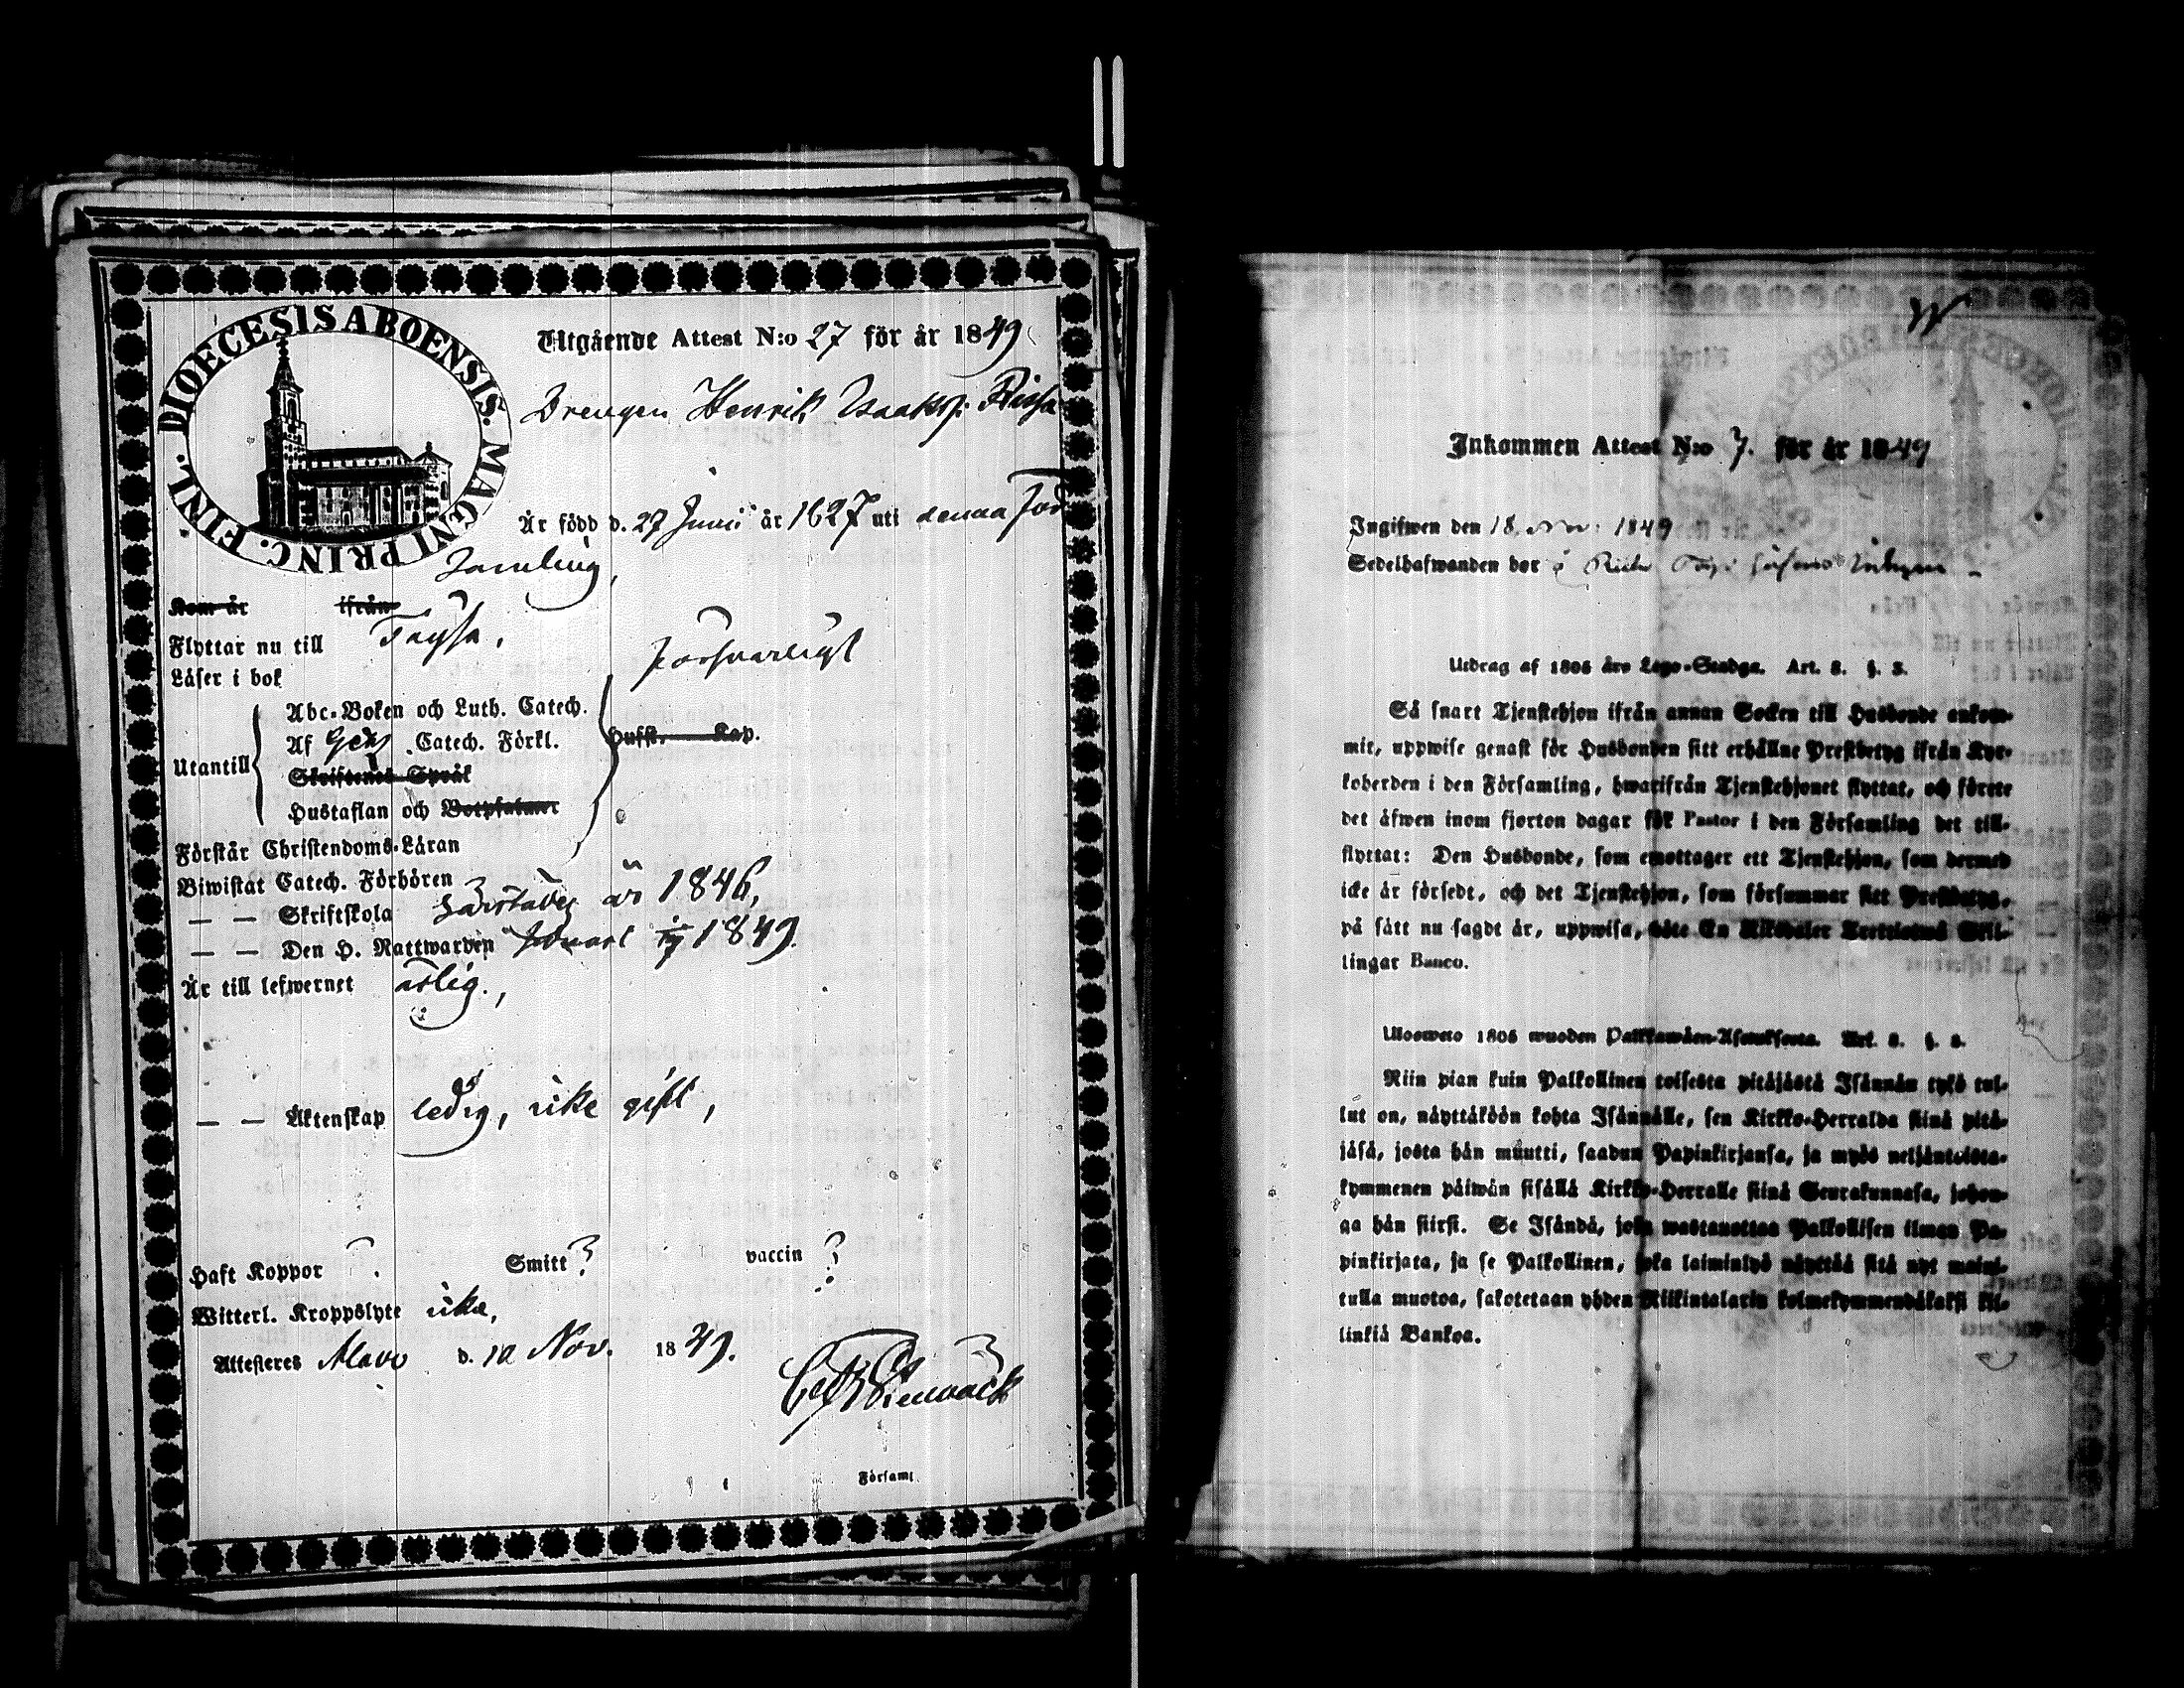 DIOECESIS ABOENSIS. MAGNI PRINC. FINL.
Utgående Attest N:o 27 för år 1849
Drengen Henrik Isaaksp. Rissa
Är född d. 27 Junii år 1827 uti denna För
samling,
Kom år ifrån
Flyttar nu till Töysä.
Läser i bok försvarligt
Utantill
Abc-Boken och Luth. Catech.
Af Catech. Förkl. Husfl. Kap.
Skriftenes Språk
Hustaflan och Botpsalmer
Förstår Christendoms-Läran
Biwistat Catech. Förhören
— — Skriftskola år 1846,
— — Den H. Nattwarden 1849.
Är till lefwernet ärlig.,
— — Äktenskap ledig, icke gift,
Haft Koppor ? Smitt ? vaccin ?
Witterl. Kroppslyte icke,
Attesteras Alavo d. 10 Nov. 1849.
Församl.
Inkommen Attest N:o 7. för år 1849
Ingifwen den 18 Nov: 1849
Sedelhafwanden bor å
Utdrag af 1805 års Lego-Stadga. Art. 8. §. 3.
Så snart Tjenstehjon ifrån annan Socken till Husbonde ankom-
mit, uppwise genast för Husbonden sitt erhållne Prestbetyg ifrån Kyr-
koherden i den Församling, hwarifrån Tjenstehjonet flyttat, och förete
det äfwen inom fjorton dagar för Pastor i den Församling det till-
flyttat: Den Husbonde, som emottager ett Tjenstehjon, som dermed
icke är försedt, och det Tjenstehjon, som försummar sitt Prestbetyg,
på sätt nu sagdt är, uppwisa, böte En Riksdaler Trettiotwå Skil-
lingar Banco.
Ulosweto 1805 wuoden Palkkawäen-Asetuksesta. Art. 8. §. 3.
Niin pian kuin Palkollinen toisesta pitäjästä Isännän tykö tul-
lut on, näyttäköön kohta Isännälle, sen Kirkko-Herralda siinä pitä-
jäsä, josta hän muutti, saadun Papinkirjansa, ja myös neljäntoista-
kymmenen päiwän sisällä Kirkko-Herralle siinä Seurakunnasa, johon-
ga hän siirsi. Se Isändä, joka wastanottaa Palkollisen ilman Pa-
pinkirjata, ja se Palkollinen, joka laiminlyö näyttää sitä nyt maini-
tulla muotoa, sakotetaan yhden Riikintalarin kolmekymmendäkaksi kil-
linkiä Bankoa.